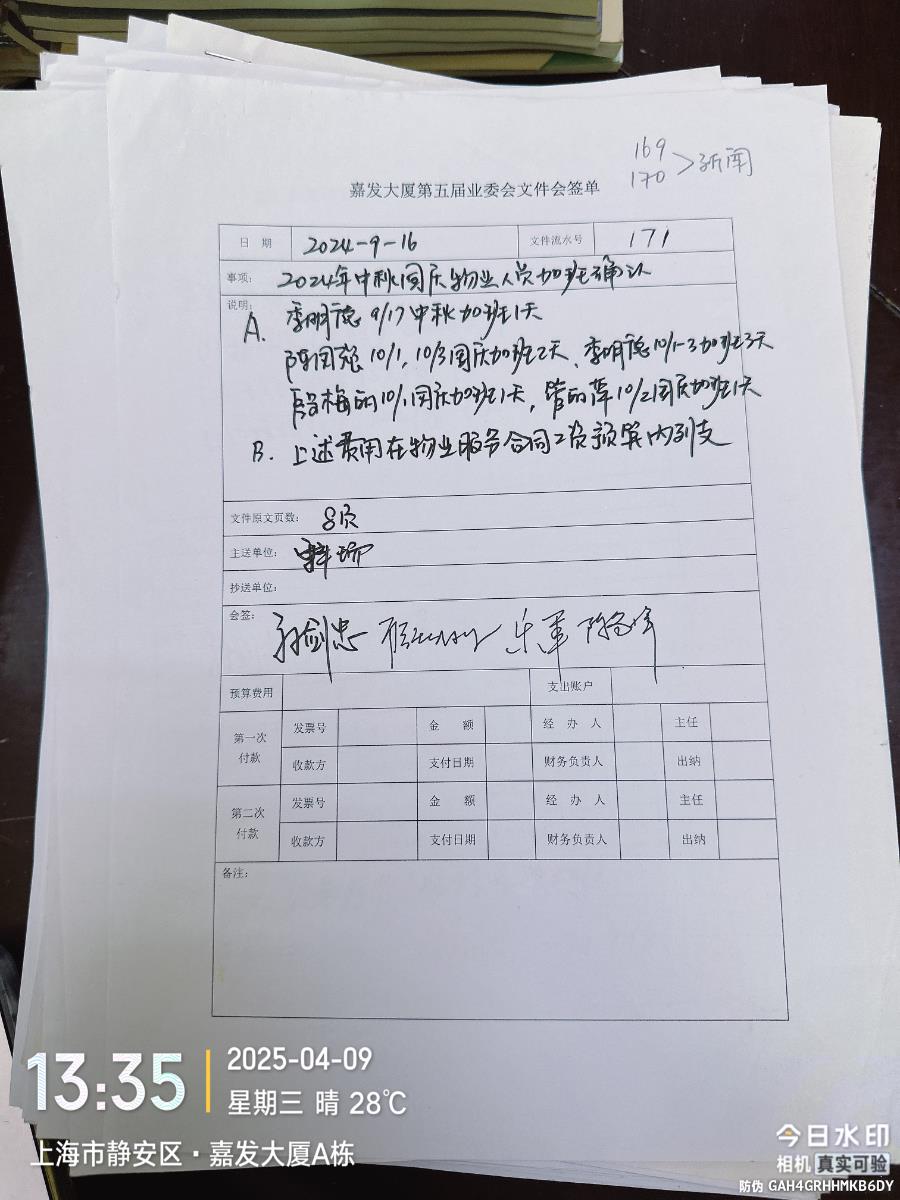 169
170 > 新闻
嘉发大厦第五届业委会文件会签单
日 期 2024-9-16 文件流水号 171
事项: 2024年中秋国庆物业人员加班确认
说明:
A. 李明德 9/17中秋加班1天
陈国强10/1, 10/3国庆加班2天、李明德10/1-3加班3天
梅的10/1国庆加班1天, 管的萍10/2国庆加班1天
B. 上述费用在物业服务合同工资预算内列支
文件原文页数: 8页
主送单位:
抄送单位:
会签: 孙剑忠 乐军
预算费用 支出账户
第一次付款 发票号 金 额 经 办 人 主任
收款方 支付日期 财务负责人 出纳
第二次付款 发票号 金 额 经 办 人 主任
收款方 支付日期 财务负责人 出纳
备注:
13:35
2025-04-09
星期三 晴 28℃
上海市静安区·嘉发大厦A栋
今日水印
相机 真实可验
防伪 GAH4GRHHMKB6DY